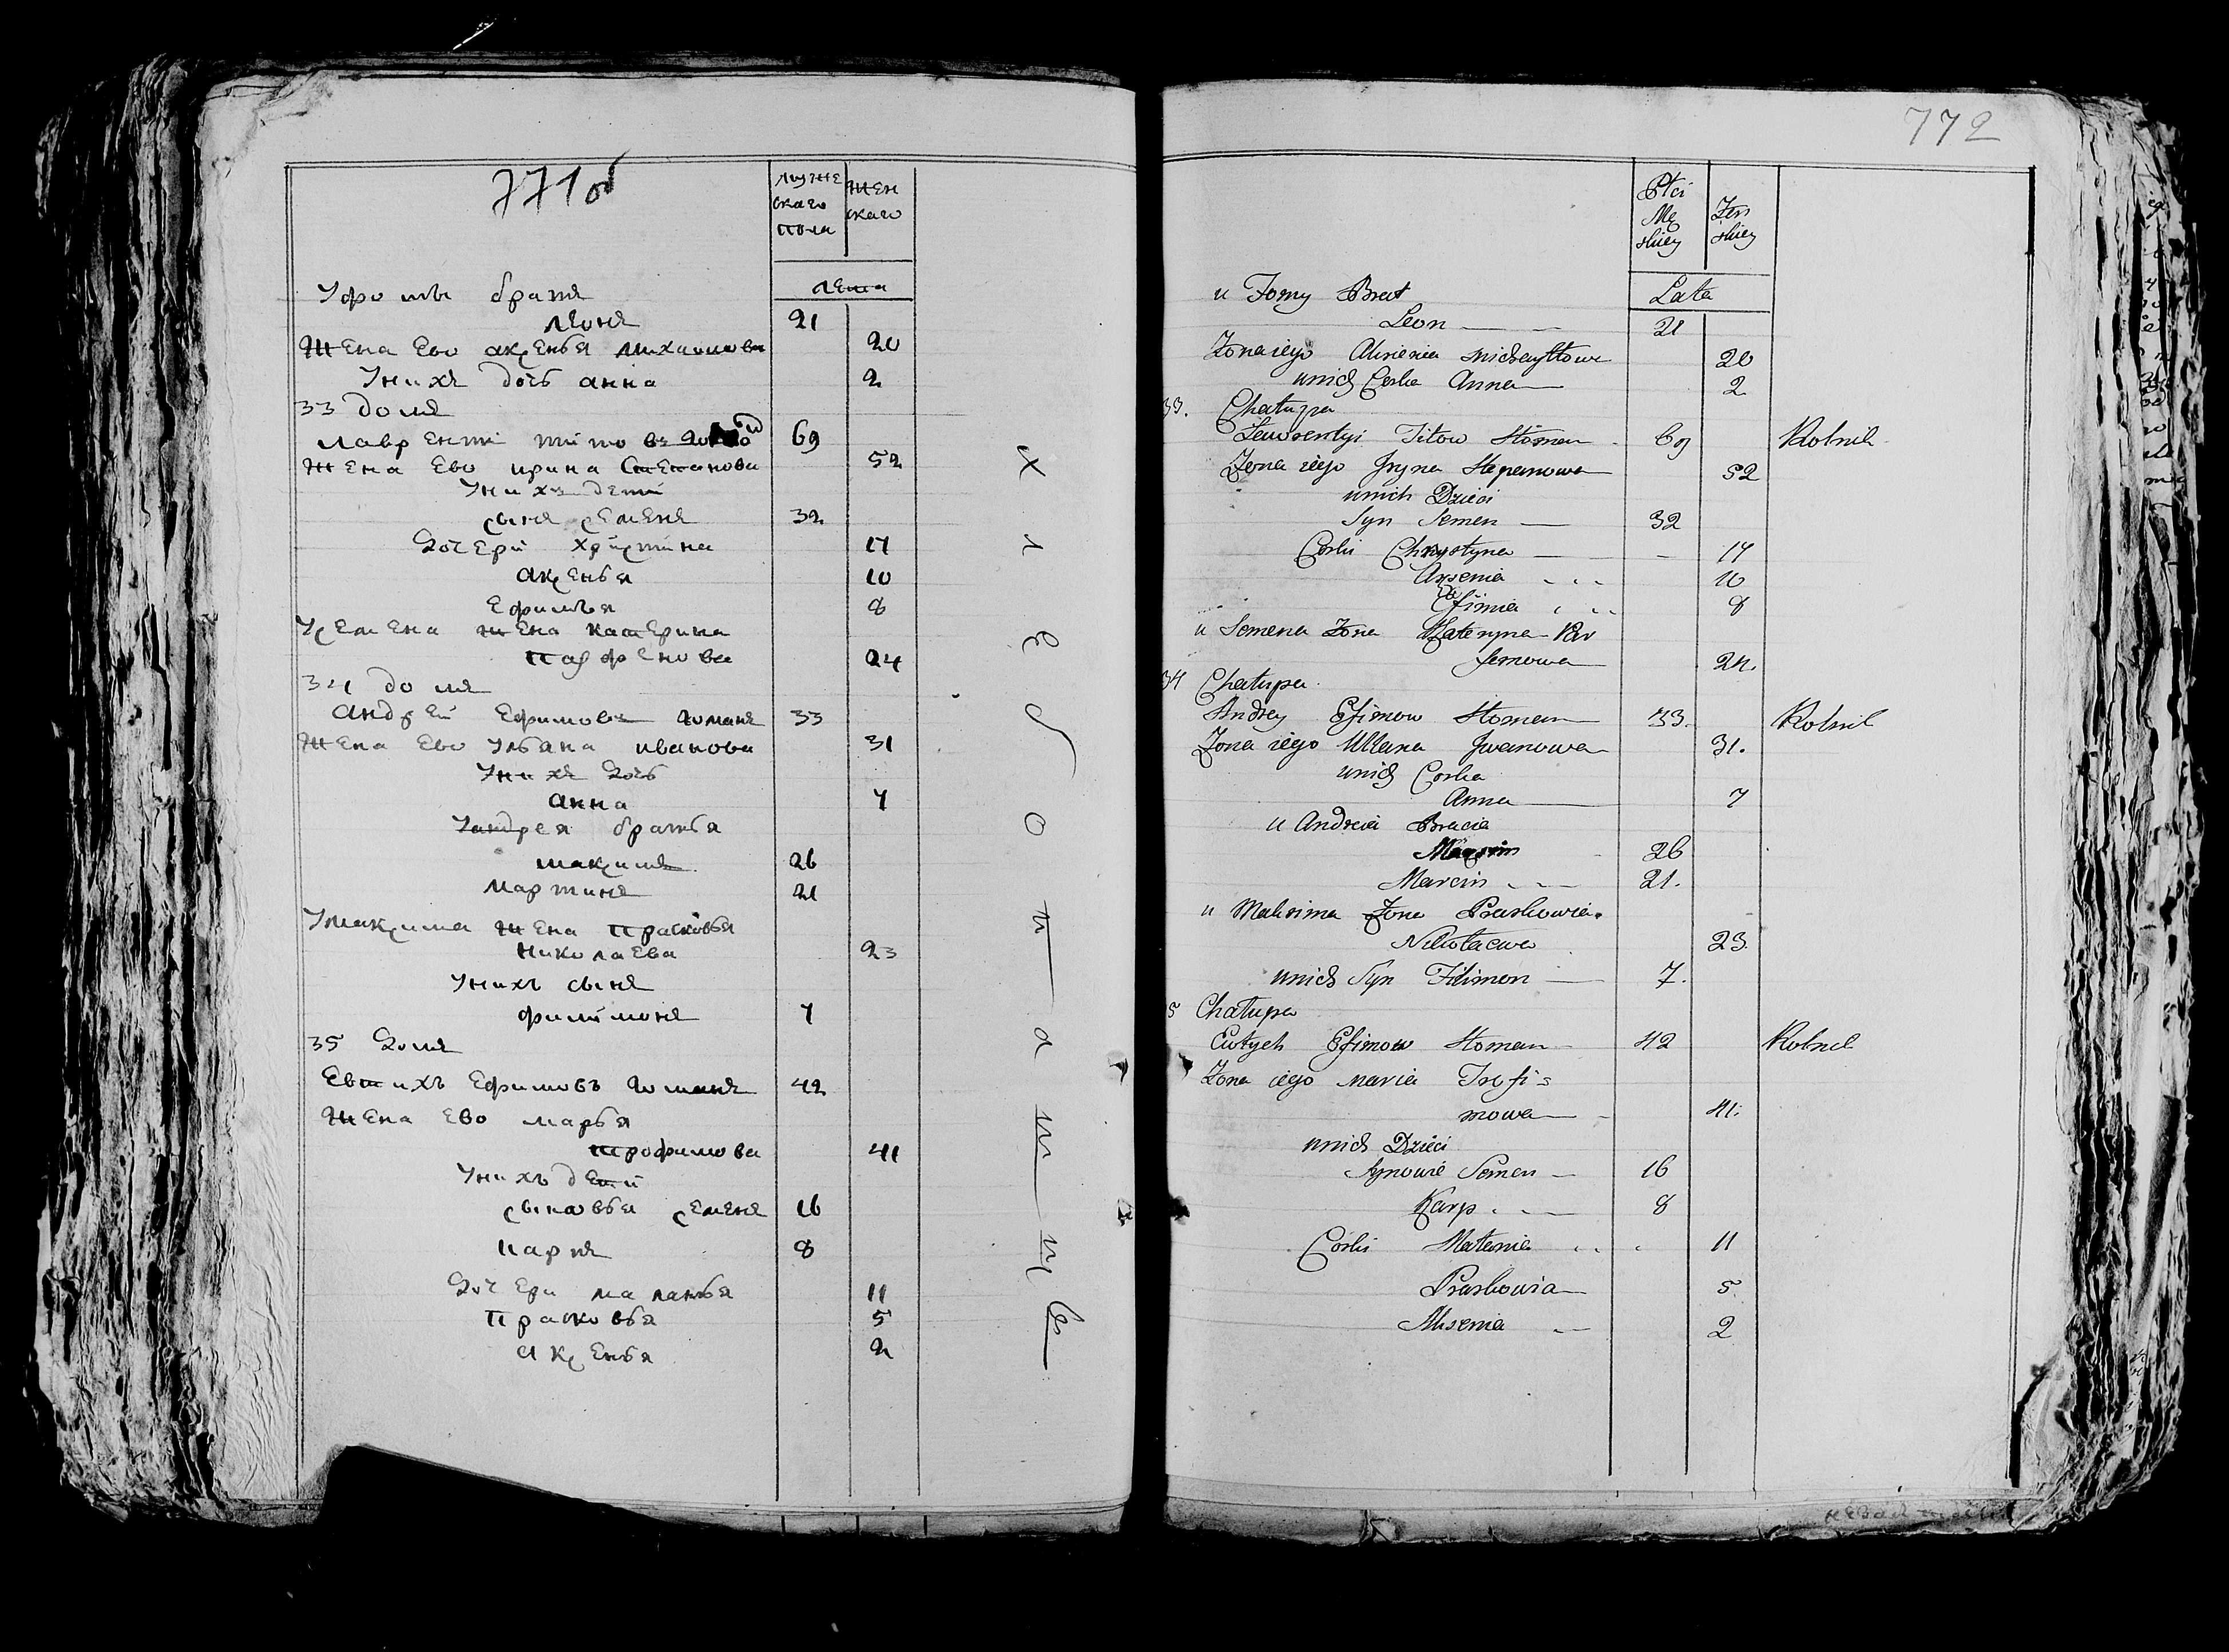 771об
муже
скаго
пола
жен
скаго
лета
У фомы братъ
леонъ 21
жена ево аксенья михаилова 20
У нихъ дочь анна 2
33 домъ
лаврентий титовъ 69
жена ево ирина степанова 52
У нихъ дети
сынъ семенъ 32
Дочери христина 17
аксенья 10
Ефимья 8
У семена жена катерина
парфенова 24
34 домъ
андрей Ефимовъ гоманъ 33
жена ево Ульяна иванова 31
У нихъ дочь
анна 7
У андрея братья
максимъ 26
мартинъ 21
У максима жена прасковья
николаева 23
У нихъ сынъ
филимонъ 7
35 домъ
Евтихъ Ефимовъ гоманъ 42
жена ево марья
трофимова 41
У нихъ дети
сыновья семенъ 16
карпъ 8
Дочери маланья 11
прасковья 5
аксенья 2
772
Płci
Mę
skiey
Żen
skiey
Lata
u Fomy Brat
Leon 21
Żona iego Axienia Michayłowa 20
u nich Corka Anna 2
33. Chałupa
Ławrentyi Titow Homan 69 Rolnik
Żona iego Iryna Stepanowa 52
u nich Dzieci
Syn Semen 32
Corki Chrystyna 17
Axenia 10
Efimia 8
u Semena Żona Kateryna Par
fenowa 24.
34 Chałupa
Andrey Efimow Homan 33. Rolnik
Żona iego Ullana Iwanowa 31.
u nich Corka
Anna 7
u Andreia Bracia
Maxim 26
Marcin 21.
u Maksima Żona Praskowia
Nikołaewa 23.
u nich Syn Filimon 7.
5 Chałupa
Ewtych Efimow Homan 42 Rolnik
Żona iego Maria Trofi=
mowa 41.
u nich Dzieci
Synowie Semen 16
Karp 8
Corki Małania 11
Praskowia 5
Aksenia 2